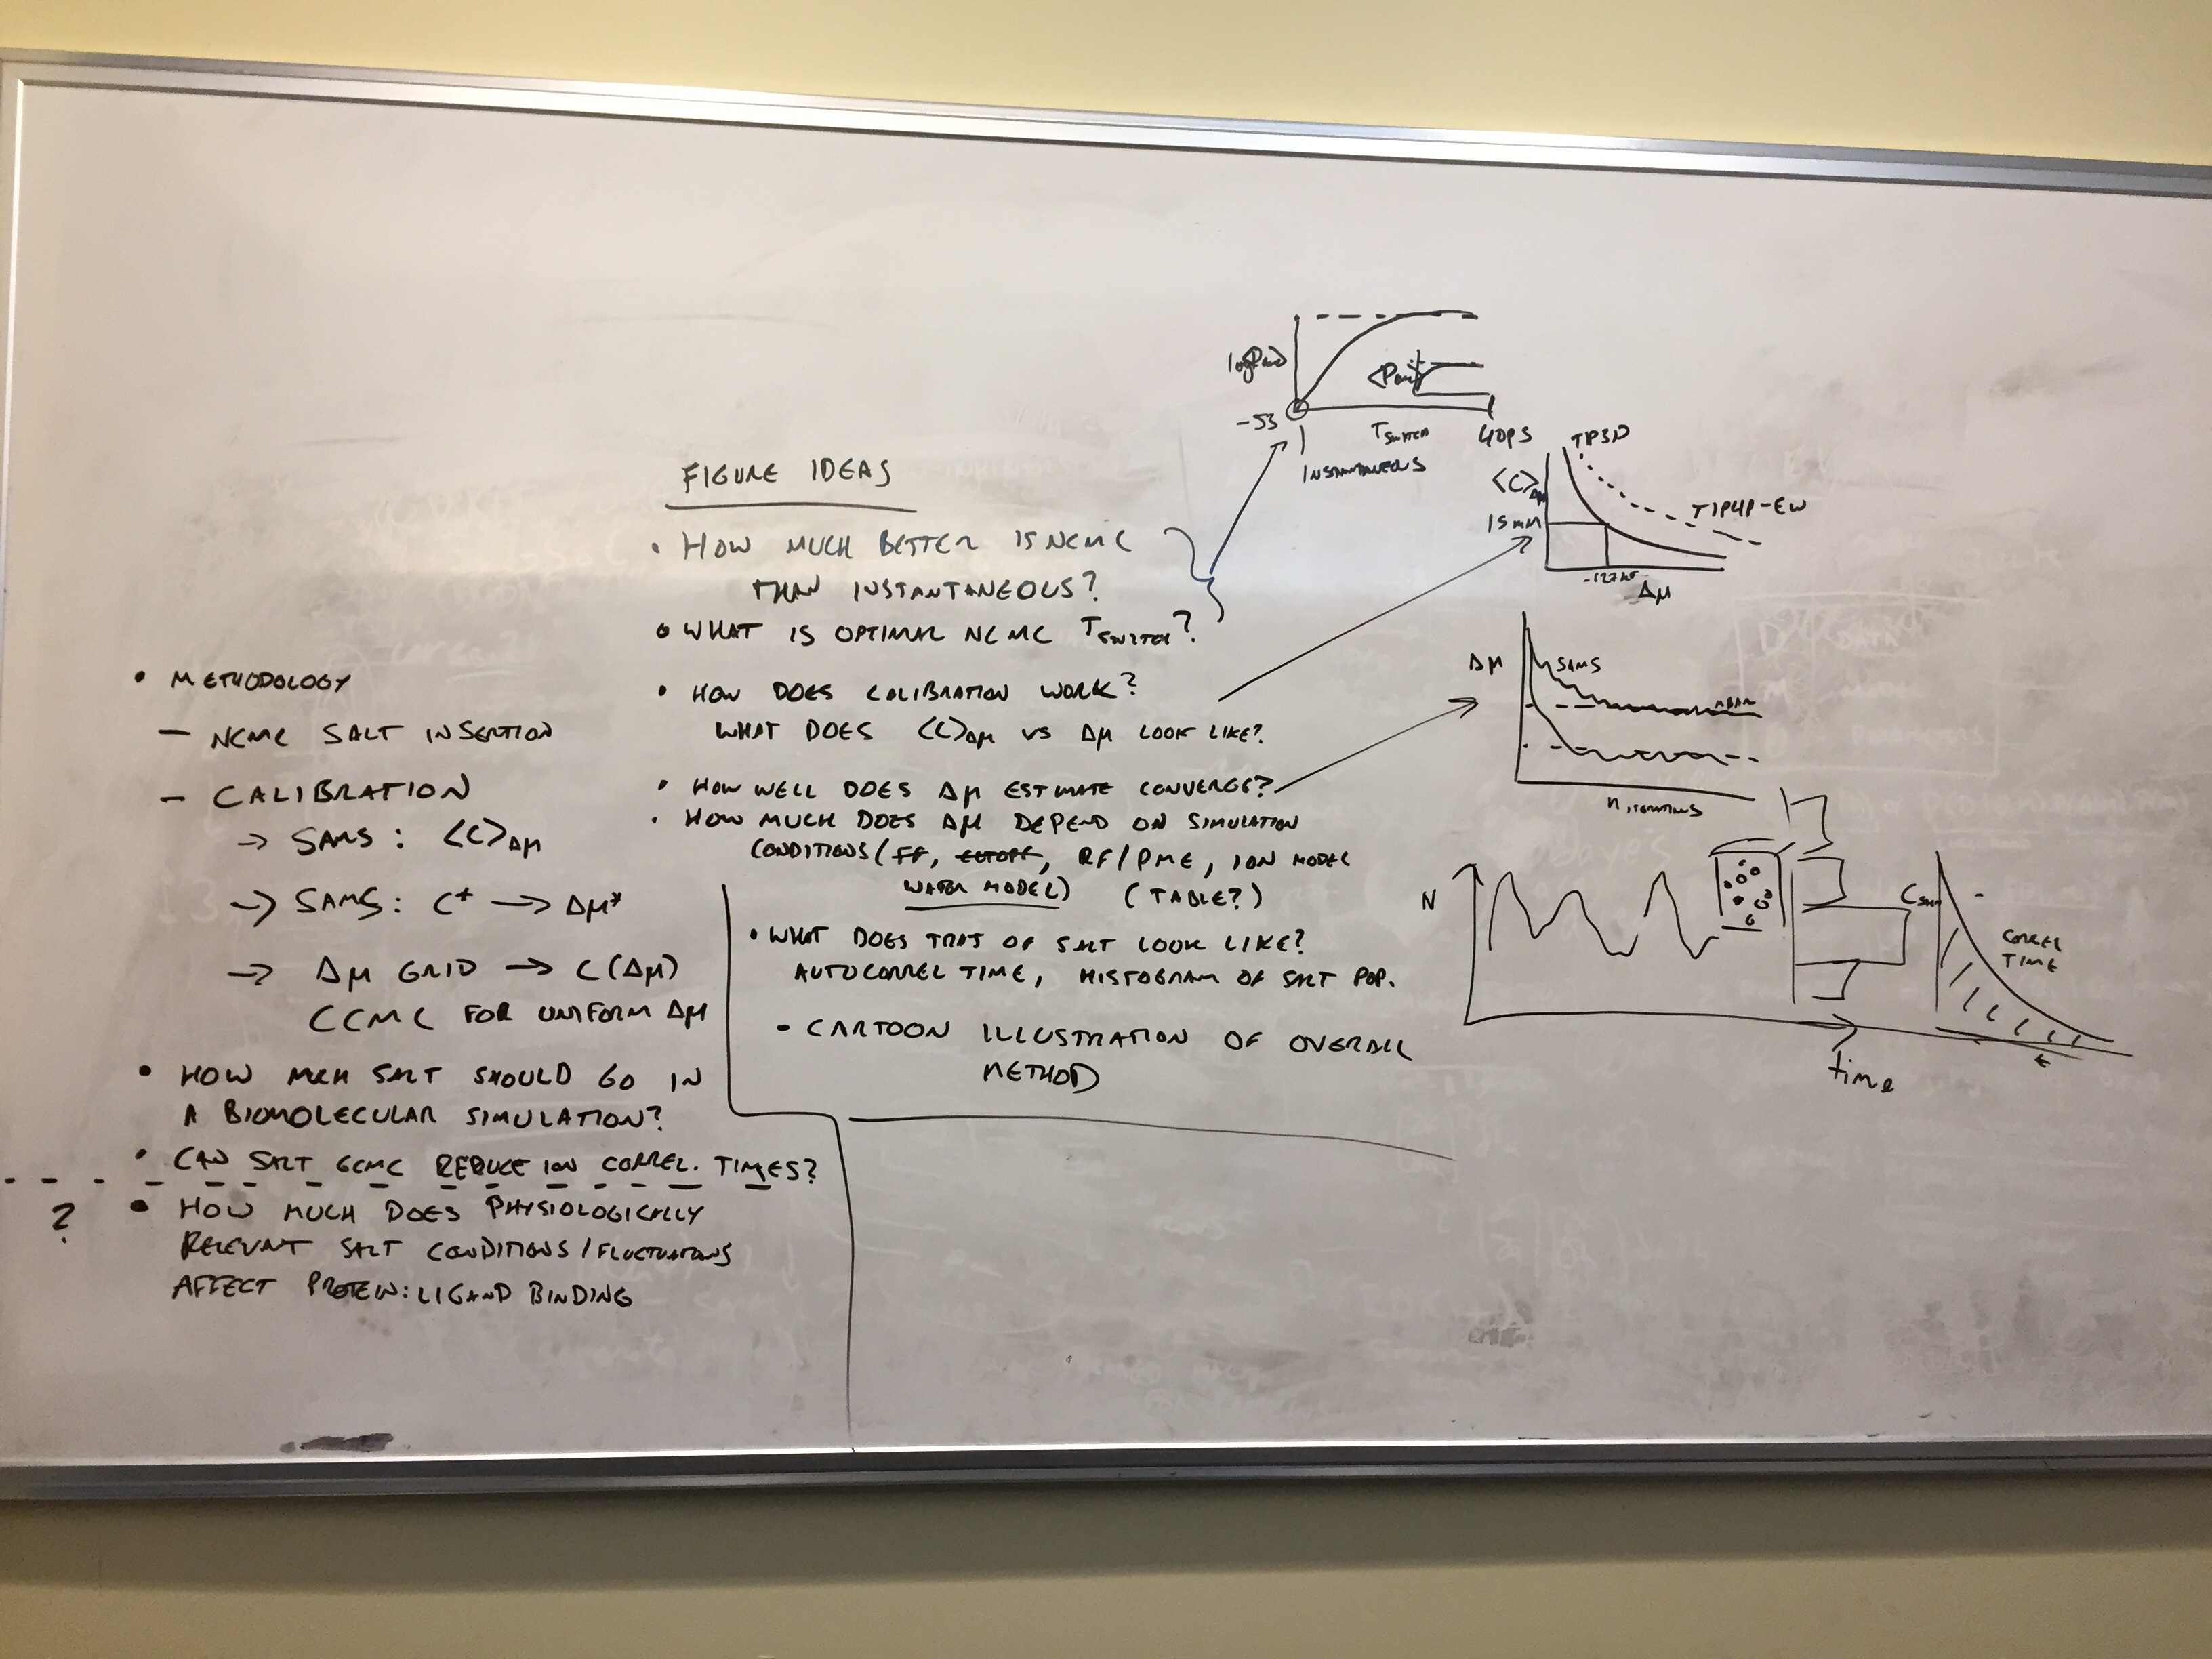 • METHODOLOGY
– NCMC SALT INSERTION
– CALIBRATION
→ SAMS: <C>Δμ
→ SAMS: C* → Δμ*
→ Δμ GRID → C(Δμ)
GCMC FOR UNIFORM Δμ
• HOW MUCH SALT SHOULD GO IN
A BIOMOLECULAR SIMULATION?
• CAN SALT GCMC REDUCE ION CORREL. TIMES?
? • HOW MUCH DOES PHYSIOLOGICALLY
RELEVANT SALT CONDITIONS/FLUCTUATIONS
AFFECT PROTEIN:LIGAND BINDING
FIGURE IDEAS
• HOW MUCH BETTER IS NCMC
THAN INSTANTANEOUS?
• WHAT IS OPTIMAL NCMC TSWITCH?
• HOW DOES CALIBRATION WORK?
WHAT DOES <C>Δμ VS Δμ LOOK LIKE?
• HOW WELL DOES Δμ ESTIMATE CONVERGE?
• HOW MUCH DOES Δμ DEPEND ON SIMULATION
CONDITIONS (FF, CUTOFF, RF/PME, ION MODEL
WATER MODEL) (TABLE?)
• WHAT DOES TRAJ OF SALT LOOK LIKE?
AUTOCORREL TIME, HISTOGRAM OF SALT POP.
• CARTOON ILLUSTRATION OF OVERALL
METHOD
-53
TSWITCH
40PS
INSTANTANEOUS
TIP3P
<C>Δμ
TIP4P-EW
Δμ
Δμ
SAMS
MBAR
n iterations
N
time
CORREL
TIME
t